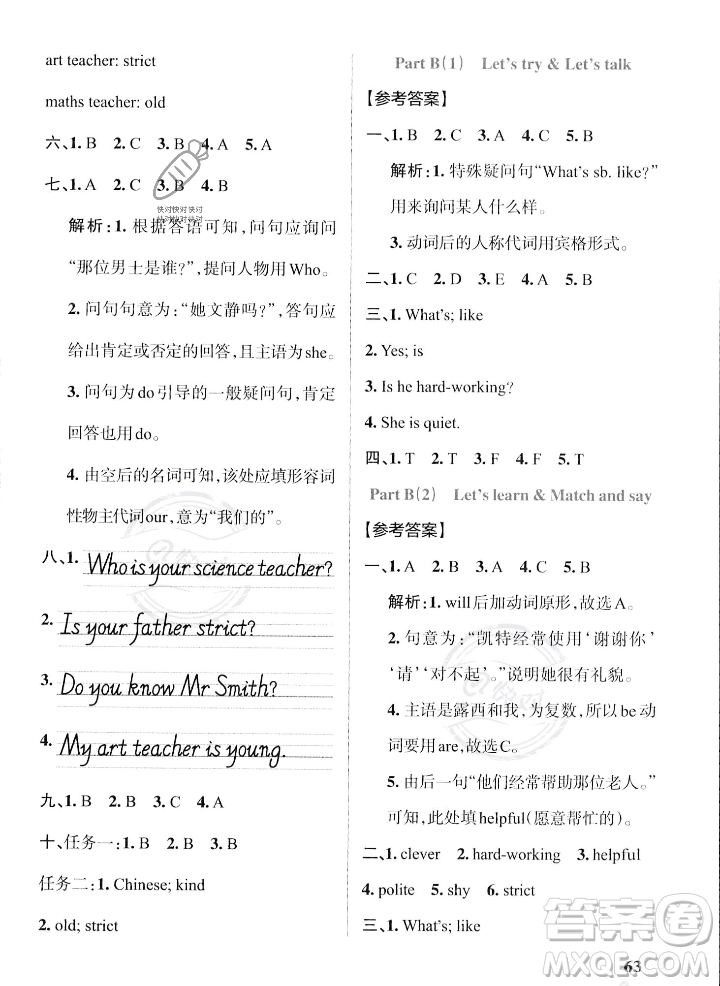 art teacher: strict
maths teacher: old
六、1. B  2. C  3. B  4. A  5. A
七、1. A  2. C  3. B  4. B
快对快对快对
快对快对快对
解析：1. 根据答语可知，问句应询问
“那位男士是谁？”，提问人物用Who。
2. 问句句意为：“她文静吗？”，答句应
给出肯定或否定的回答，且主语为she。
3. 问句为do引导的一般疑问句，肯定
回答也用do。
4. 由空后的名词可知，该处应填形容词
性物主代词our，意为“我们的”。
八、1. Who is your science teacher?
2. Is your father strict?
3. Do you know Mr Smith?
4. My art teacher is young.
九、1. B  2. B  3. C  4. A
十、任务一：1. B  2. A  3. B
任务二：1. Chinese; kind
2. old; strict
Part B(1)  Let's try & Let's talk
【参考答案】
一、1. B  2. C  3. B  4. A  5. C
解析：1. 特殊疑问句“What's sb. like?”
用来询问某人什么样。
3. 动词后的人称代词用宾格形式。
二、1. C  2. D  3. E  4. A  5. B
三、1. What's; like
2. Yes; is
3. Is he hard-working?
4. She is quiet.
四、1. T  2. F  3. F  4. F  5. T
Part B(2)  Let's learn & Match and say
【参考答案】
一、1. A  2. B  3. A  4. C  5. B
解析：1. will后加动词原形，故选A。
2. 句意为：“凯特经常使用‘谢谢你’
‘请’‘对不起’。”说明她很有礼貌。
4. 主语是露西和我，为复数，所以be动
词要用are，故选C。
5. 由后一句“他们经常帮助那位老人。”
可知，此处填helpful(愿意帮忙的)。
二、1. clever  2. hard-working  3. helpful
4. polite  5. shy  6. strict
三、1. What's; like
63
答案圈
MXQE.COM